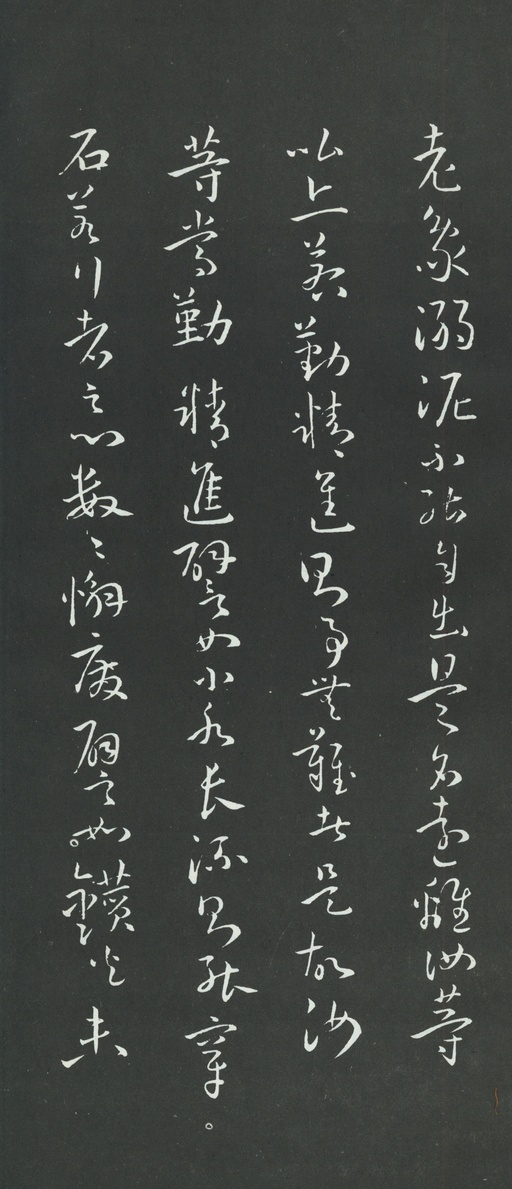 老象溺泥不能自出是名遠離汝等
比丘若勤精進則事無難者是故汝
等當勤精進譬如小水長流則能穿
石若行者之心數數懈廢譬如鑽火未